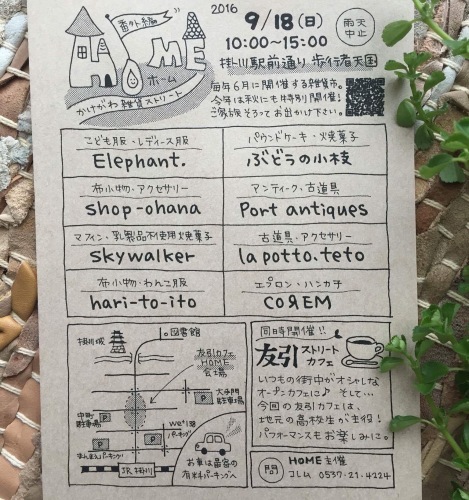 番外編
HOME
ホーム
かけがわ雑貨ストリート
2016
9/18(日)
雨天
中止
10:00~15:00
掛川駅前通り 歩行者天国
毎年6月に開催する雑貨市。
今年は秋にも特別開催!
ご家族そろってお出かけ下さい。
こども服・レディース服
Elephant.
パウンドケーキ・焼菓子
ぶどうの小枝
布小物・アクセサリー
shop-ohana
アンティーク・古道具
Port antiques
マフィン・乳製品不使用焼菓子
skywalker
古道具・アクセサリー
la potto.teto
布小物・わんこ服
hari-to-ito
エプロン・ハンカチ
COЯEM
掛川城
図書館
友引カフェ
HOME
会場
大手門
駐車場
中町
駐車場
P
we+138
パーキング
P
P
P
まんまんパーキング
JR掛川
お車は最寄の
有料パーキングへ
同時開催!!
友引ストリート
カフェ
いつもの街中がオシャレな
オープンカフェに♪ そして…
今回の友引カフェは、
地元の高校生が主役!
パフォーマンスもお楽しみに。
問
HOME主催
コレム 0537-21-4224